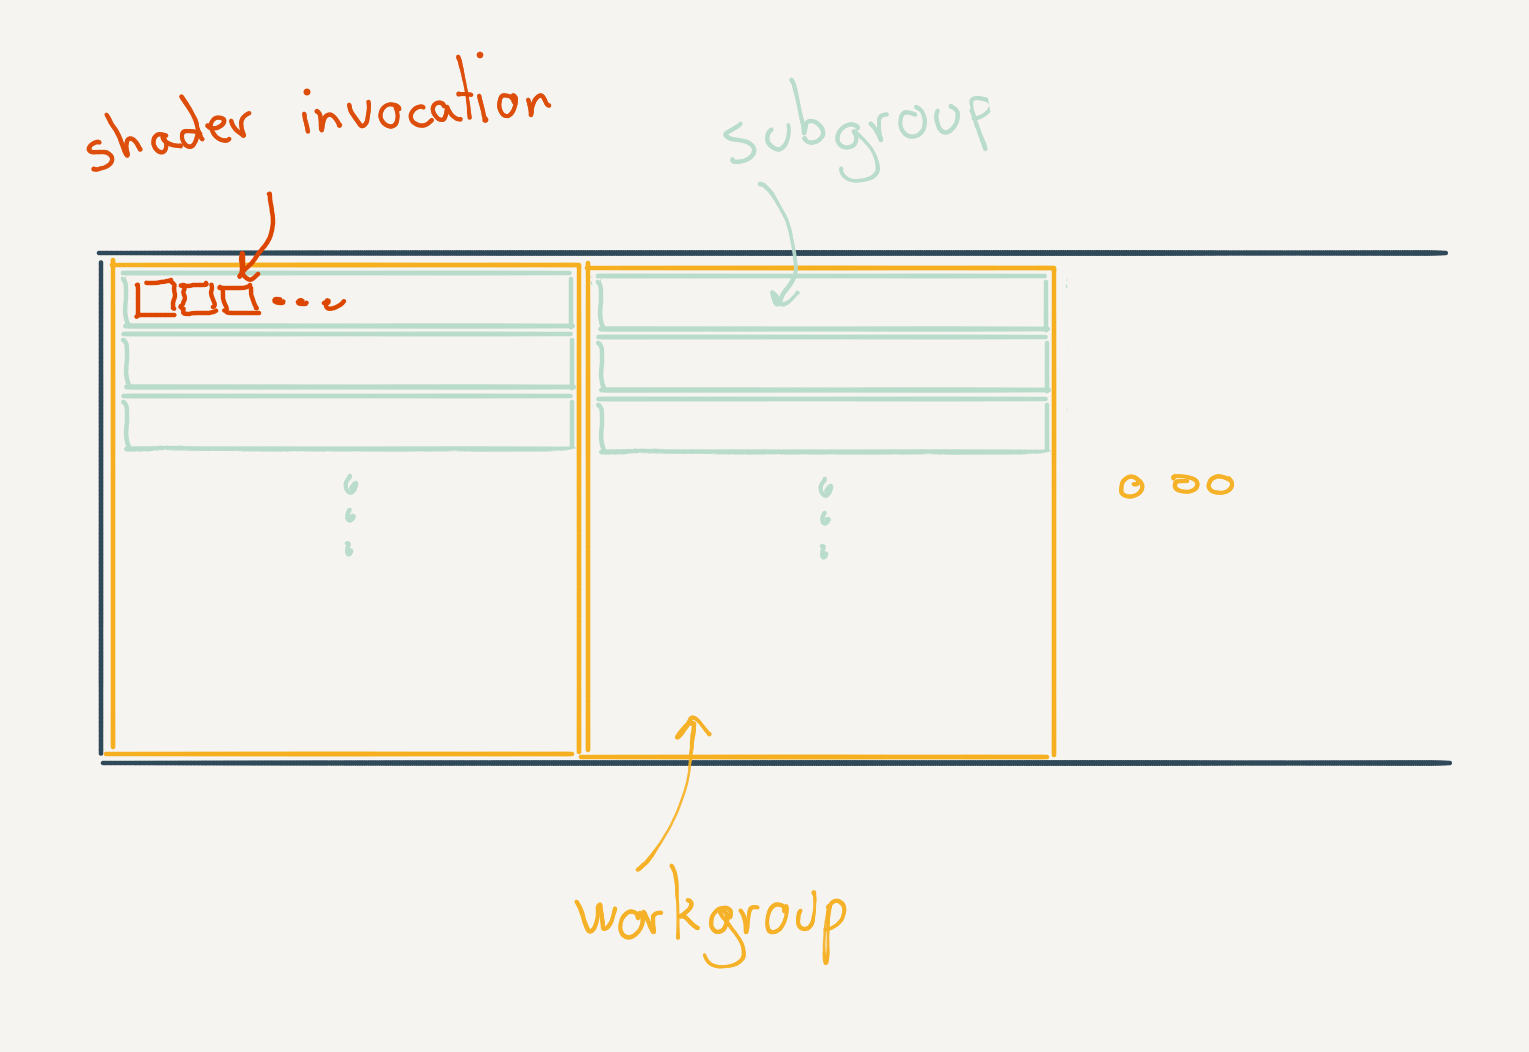 shader invocation
subgroup
workgroup